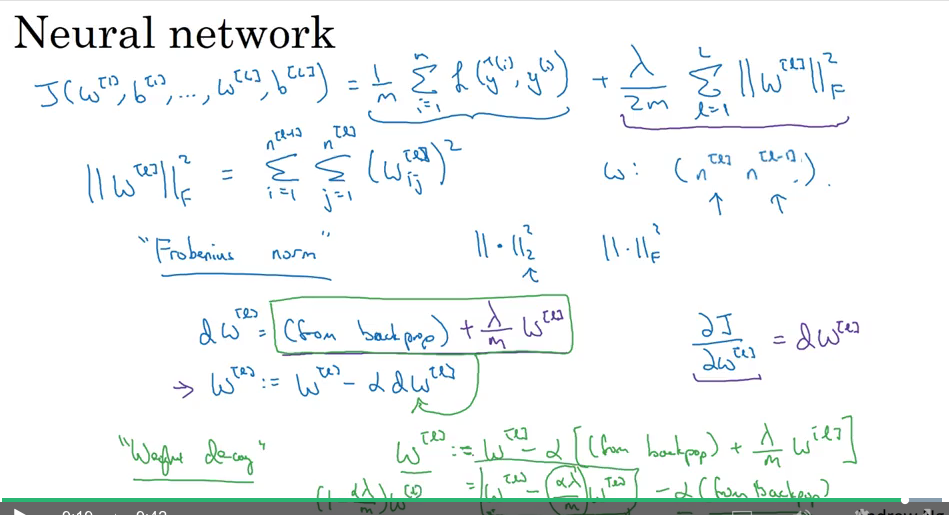 Neural network
J(w^[1], b^[1], ..., w^[L], b^[L]) = 1/m ∑_{i=1}^{m} ℒ(ŷ^(i), y^(i)) + λ/2m ∑_{l=1}^{L} ||w^[l]||_F^2
||w^[l]||_F^2 = ∑_{i=1}^{n^[l-1]} ∑_{j=1}^{n^[l]} (w_ij^[l])^2 w: (n^[l] n^[l-1]).
"Frobenius norm" ||·||_2^2 ||·||_F^2
dw^[l] = (from backprop) + λ/m w^[l] ∂J/∂w^[l] = dw^[l]
→ w^[l] := w^[l] - α dw^[l]
"Weight decay" w^[l] := w^[l] - α [(from backprop) + λ/m w^[l]]
(1 - αλ/m) w^[l] = w^[l] - αλ/m w^[l] - α (from backprop)